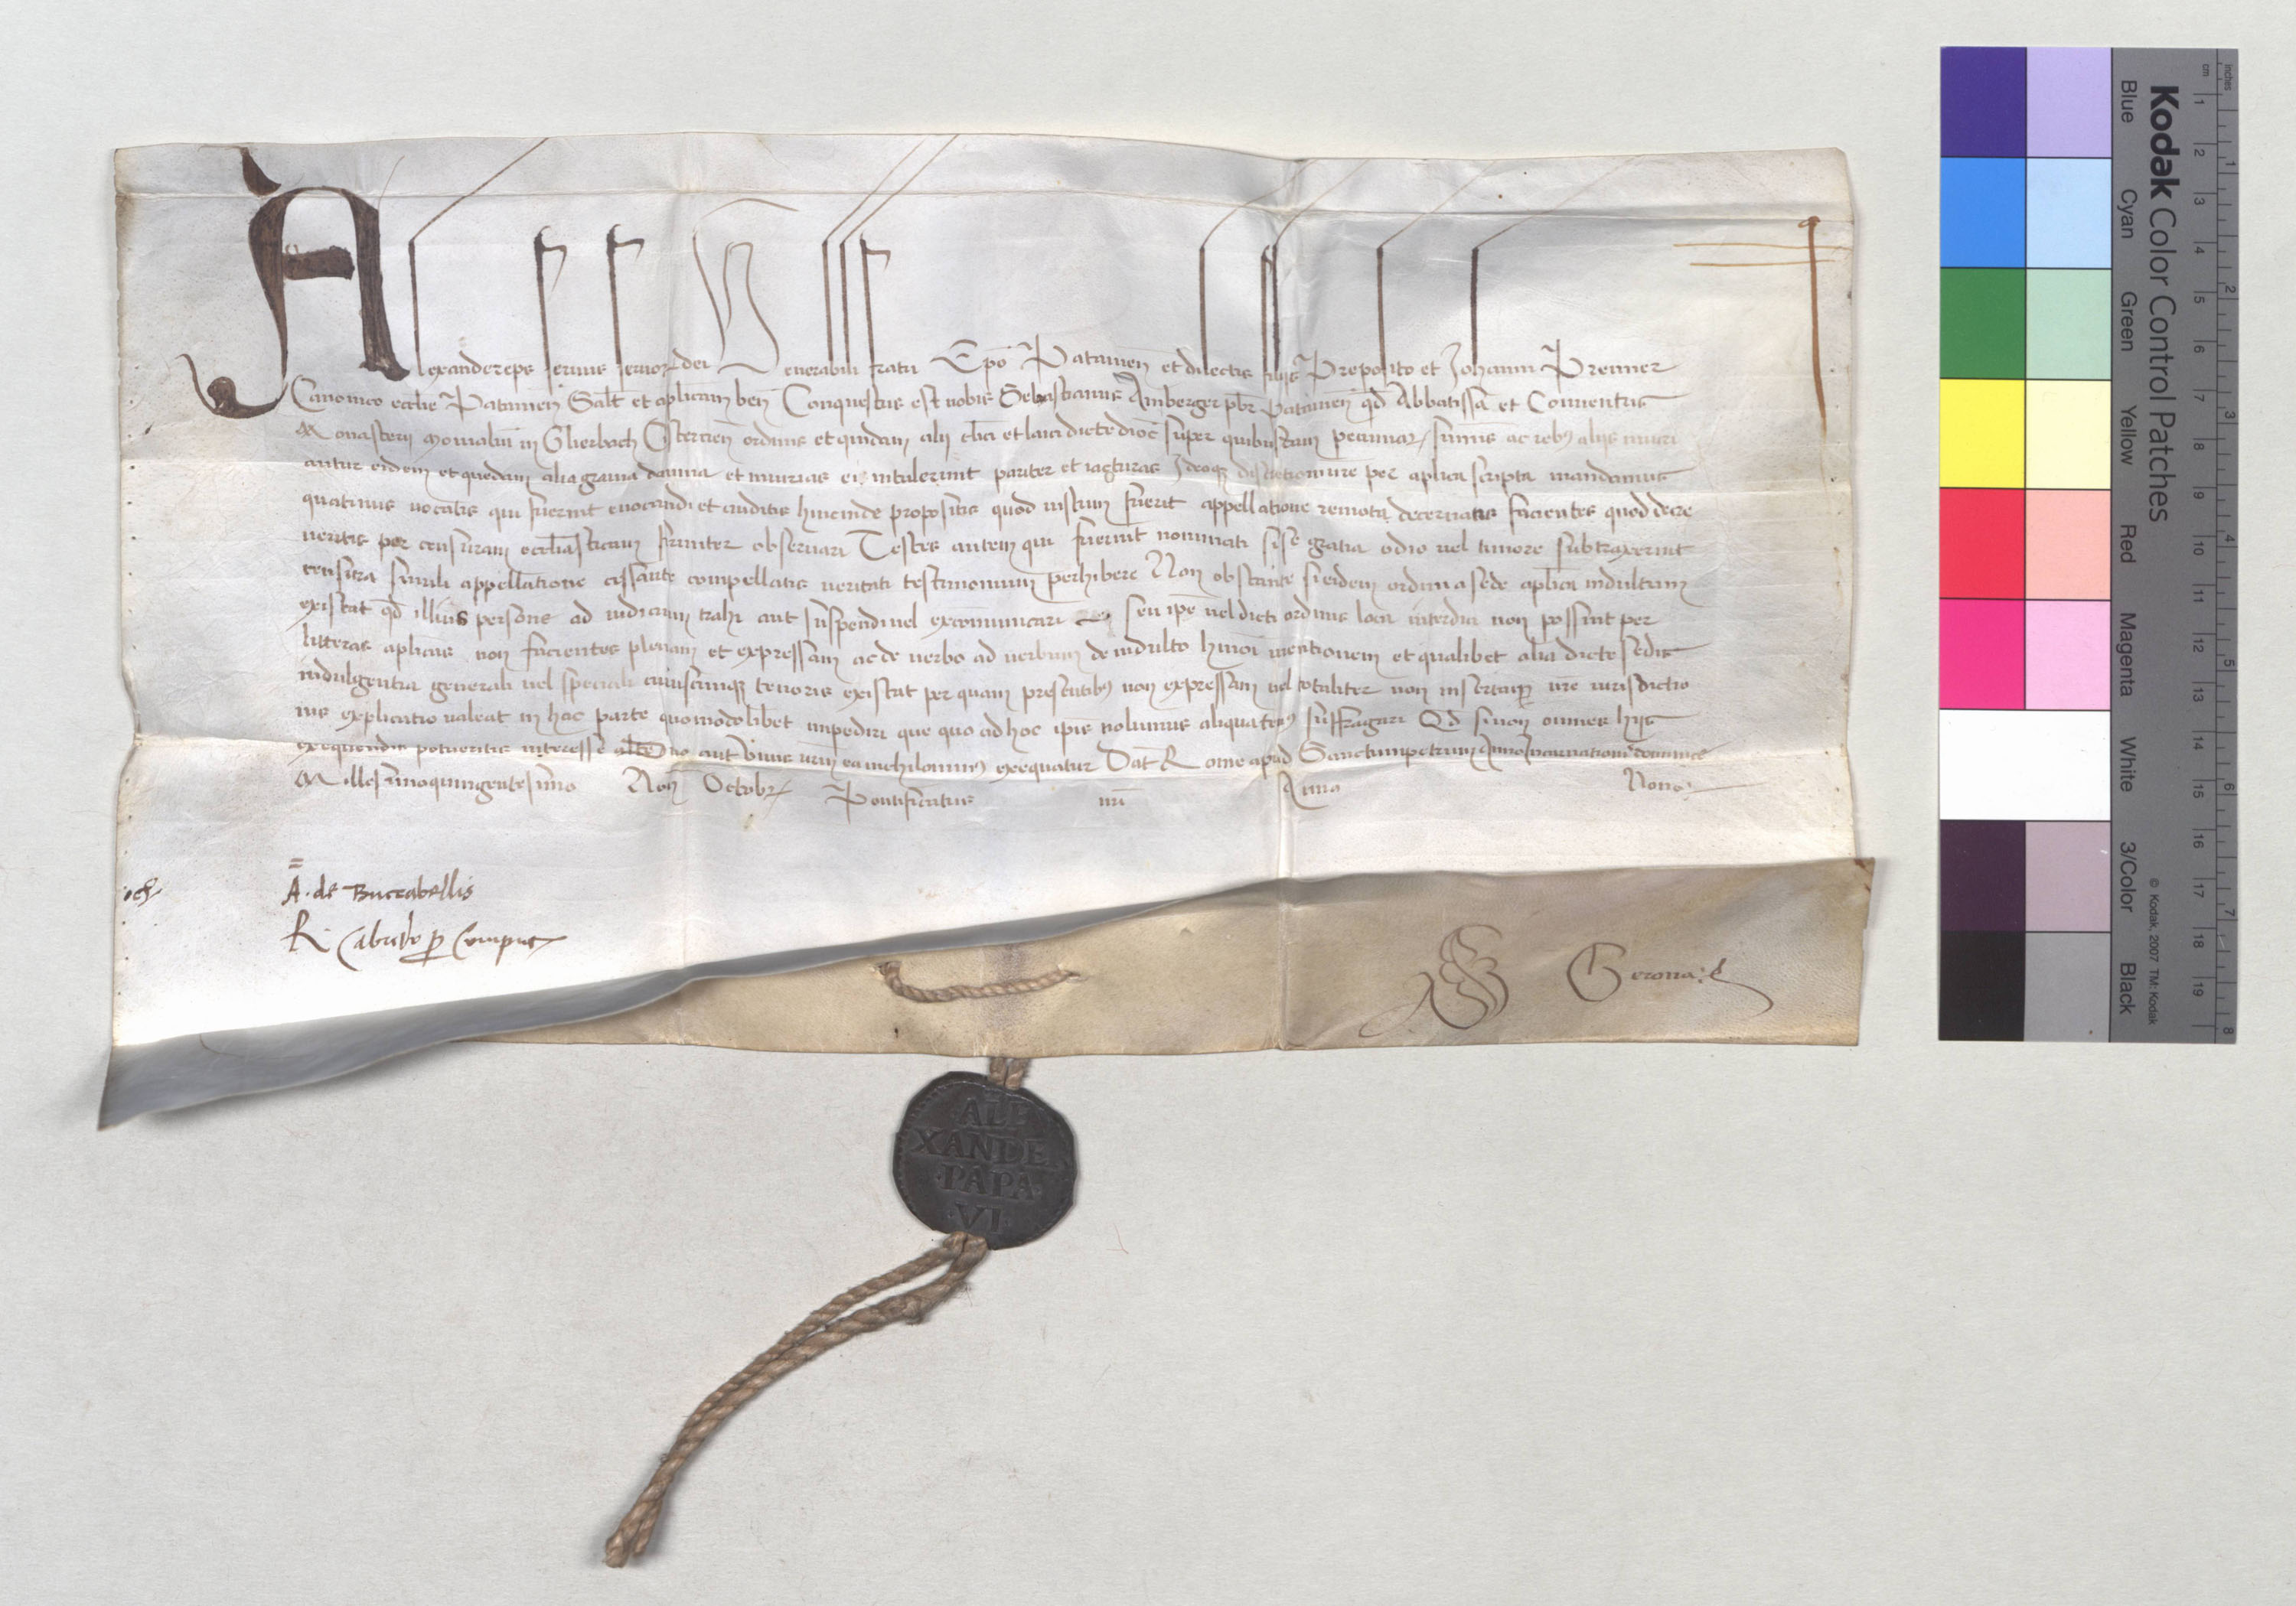 Alexander eps seruus seruor dei Venerabili fratri Epo Patauien et dilectis filijs Preposito et Johanni Prenner
Canonico ecclie Patauien Salt et aplicam ben Conquestus est nobis Sebastianus Amberger pbr Patauien qd Abbatissa et Conuentus
Monasterij Monialiu in Slierbach Cistercien ordinis et quidam alij clici et laici dicte dioc super quibusdam pecuniar summis ac rebs alijs iniuri
antur eidem et quedam alia grauia damna et iniurias ei intulerunt pariter et iacturas Ideoqz discretioni ure per aplica scripta mandamus
quatinus uocatis qui fuerint euocandi et auditis hincinde propositis quod iustum fuerit appellatione remota decernatis facientes quod decre
ueritis per censuram eccliasticam firmiter obseruari Testes autem qui fuerint nominati si se gratia odio uel timore subtraxerint
censura simili appellatione cessante compellatis ueritati testimonium perhibere Non obstante si eidem ordini a sede aplica indultum
existat qd illius persone ad iudicium trahi aut suspendi uel excomunicari seu ipe uel dicti ordinis loca interdici non possint per
litteras aplicas non facientes plenam et expressam ac de uerbo ad uerbum de indulto hmoi mentionem et qualibet alia dicte sedis
indulgentia generali uel speciali cuiuscunqz tenoris existat per quam presentibs non expressam uel totaliter non insertam ure iurisdictio
nis explicatio ualeat in hac parte quomodolibet impediri que quo ad hoc ipis nolumus aliquatens suffragari Qd si non omnes hijs
exequendis potueritis interesse duo aut Unus urm ea nichilominus exequatur Dat Rome apud Sanctumpetrum Anno Incarnationis dominice
Millesimoquingentesimo Non Octobr Pontificatus nri Anno Nono
A. de Buccabellis
R. Cabredo p Comput
Gerona
ALE
XANDER
·PAPA·
·VI·
Kodak Color Control Patches
Blue Cyan Green Yellow Red Magenta White 3/Color Black
© Kodak, 2007 TM: Kodak
cm 1 2 3 4 5 6 7 8 9 10 11 12 13 14 15 16 17 18 19
inches 1 2 3 4 5 6 7 8